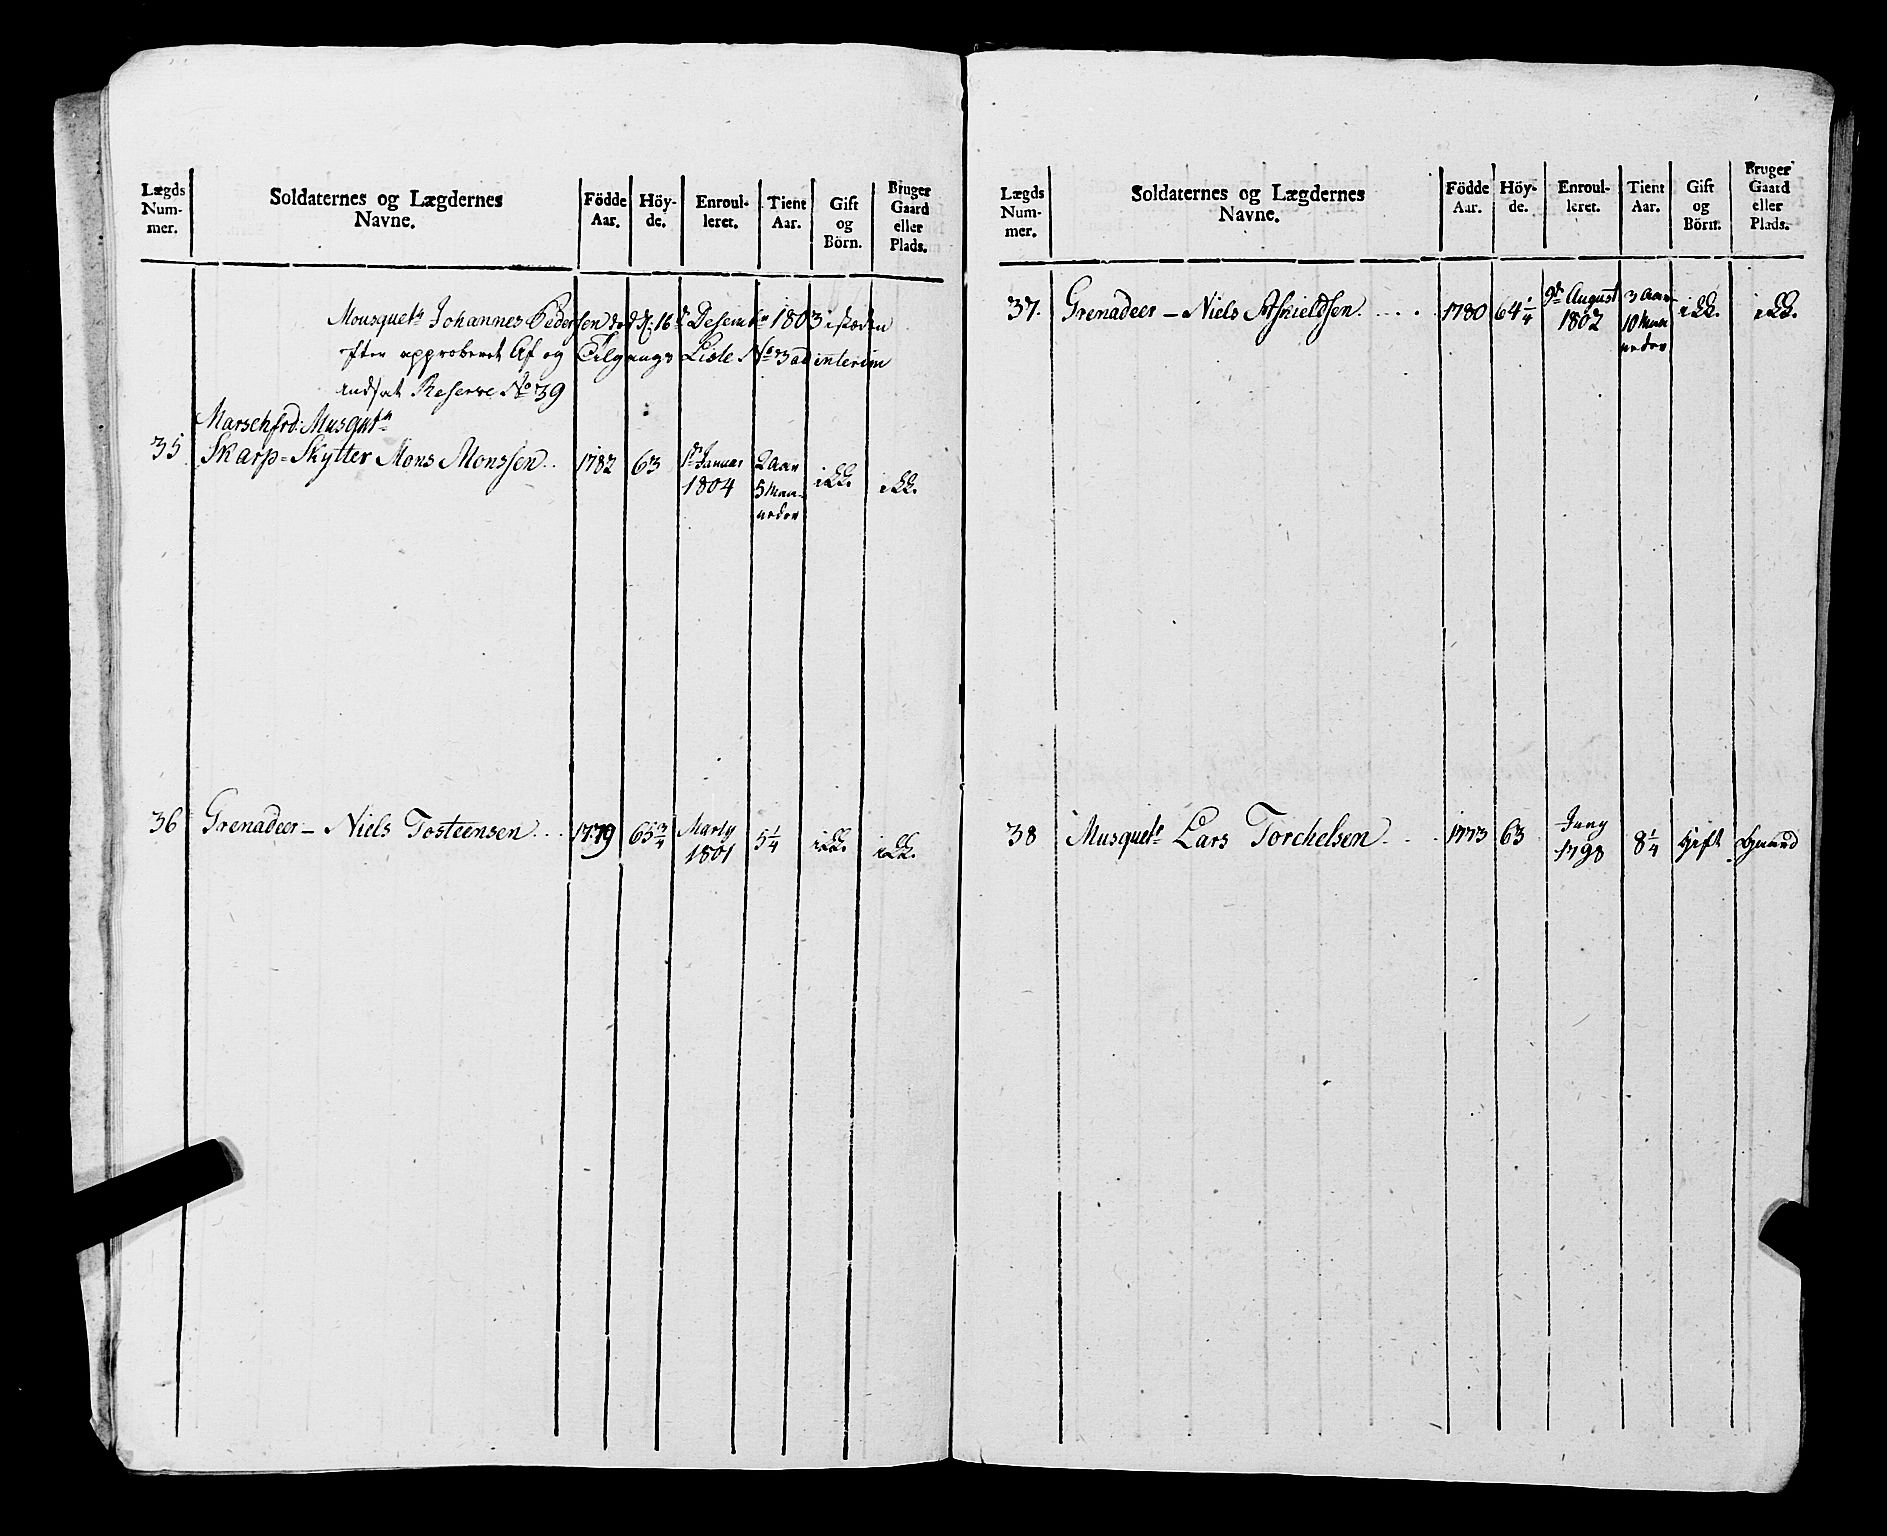 Lægds Num- mer. Soldaternes og Lægdernes Navne. Födde Aar. Höy- de. Enroul- leret. Tient Aar. Gift og Börn. Bruger Gaard eller Plads.
Mousquetr Johannes Pedersen 16de Desembr 1803 isteden
efter approberet Af og Tilgangs Liste No 3 ad interim
indsat Reserve No 39
Marschfrd: Musqutr
35 Skarp=Skytter Mons Monssen 1782 63 1de Januar 1804 2 Aar 5 Maaneder ikk. ikk.
36 Grenadeer - Niels Tosteensen 1779 65 3/4 Marty 1801 5 1/4 ikk. ikk.
Lægds Num- mer. Soldaternes og Lægdernes Navne. Födde Aar. Höy- de. Enroul- leret. Tient Aar. Gift og Börn. Bruger Gaard eller Plads.
37. Grenadeer - Niels Askieldsen 1780 64 1/4 9de August 1802 3 Aar 10 Maaneder ikk. ikk.
38 Musquetr Lars Torchelsen 1773 63 Juny 1798 8 1/4 Gift Gaard